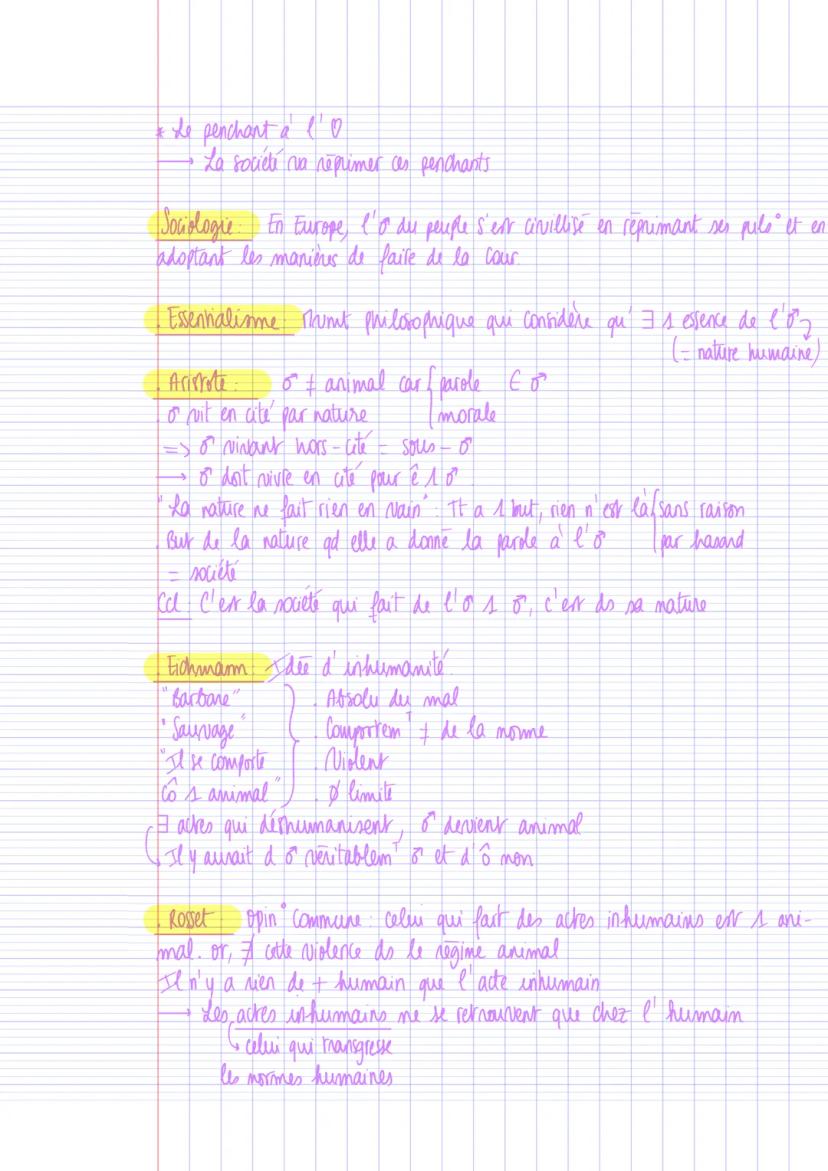 * Le penchant à l'♡
→ La société va réprimer ces penchants
. Sociologie : En Europe, l'♂ du peuple s'est civillisé en réprimant ses puls° et en
adoptant les manières de faire de la cour.
. Essentialisme : Mvmt philosophique qui considère qu' ∃ 1 essence de l'♂
(= nature humaine)
. Aristote : ♂ ≠ animal car { parole ∈ ♂
. ♂ vit en cité par nature { morale
=> ♂ vivant hors-cité = sous-♂
→ ♂ doit vivre en cité pour ê 1 ♂
"La nature ne fait rien en vain" : Tt a 1 but, rien n'est là { sans raison
. But de la nature qd elle a donné la parole à l'♂ { par hasard
= société
Ccl : C'est la société qui fait de l'♂ 1 ♂, c'est ds sa nature
. Eichmann : Idée d'inhumanité.
"Barbare" . Absolu du mal
"Sauvage" . Comportemᵀ ≠ de la norme
"Il se comporte . Violent
cô 1 animal" . ∅ limite
∃ actes qui déshumanisent, ♂ devient animal
↳ Il y aurait d ♂ véritablemᵀ ♂ et d'ô non
. Rosset : Opin° commune : celui qui fait des actes inhumains est 1 ani-
mal. or, ∄ cette violence ds le règime animal
Il n'y a rien de + humain que l'acte inhumain
→ Les actes inhumains ne se retrouvent que chez l'humain
↳ celui qui transgresse
les normes humaines